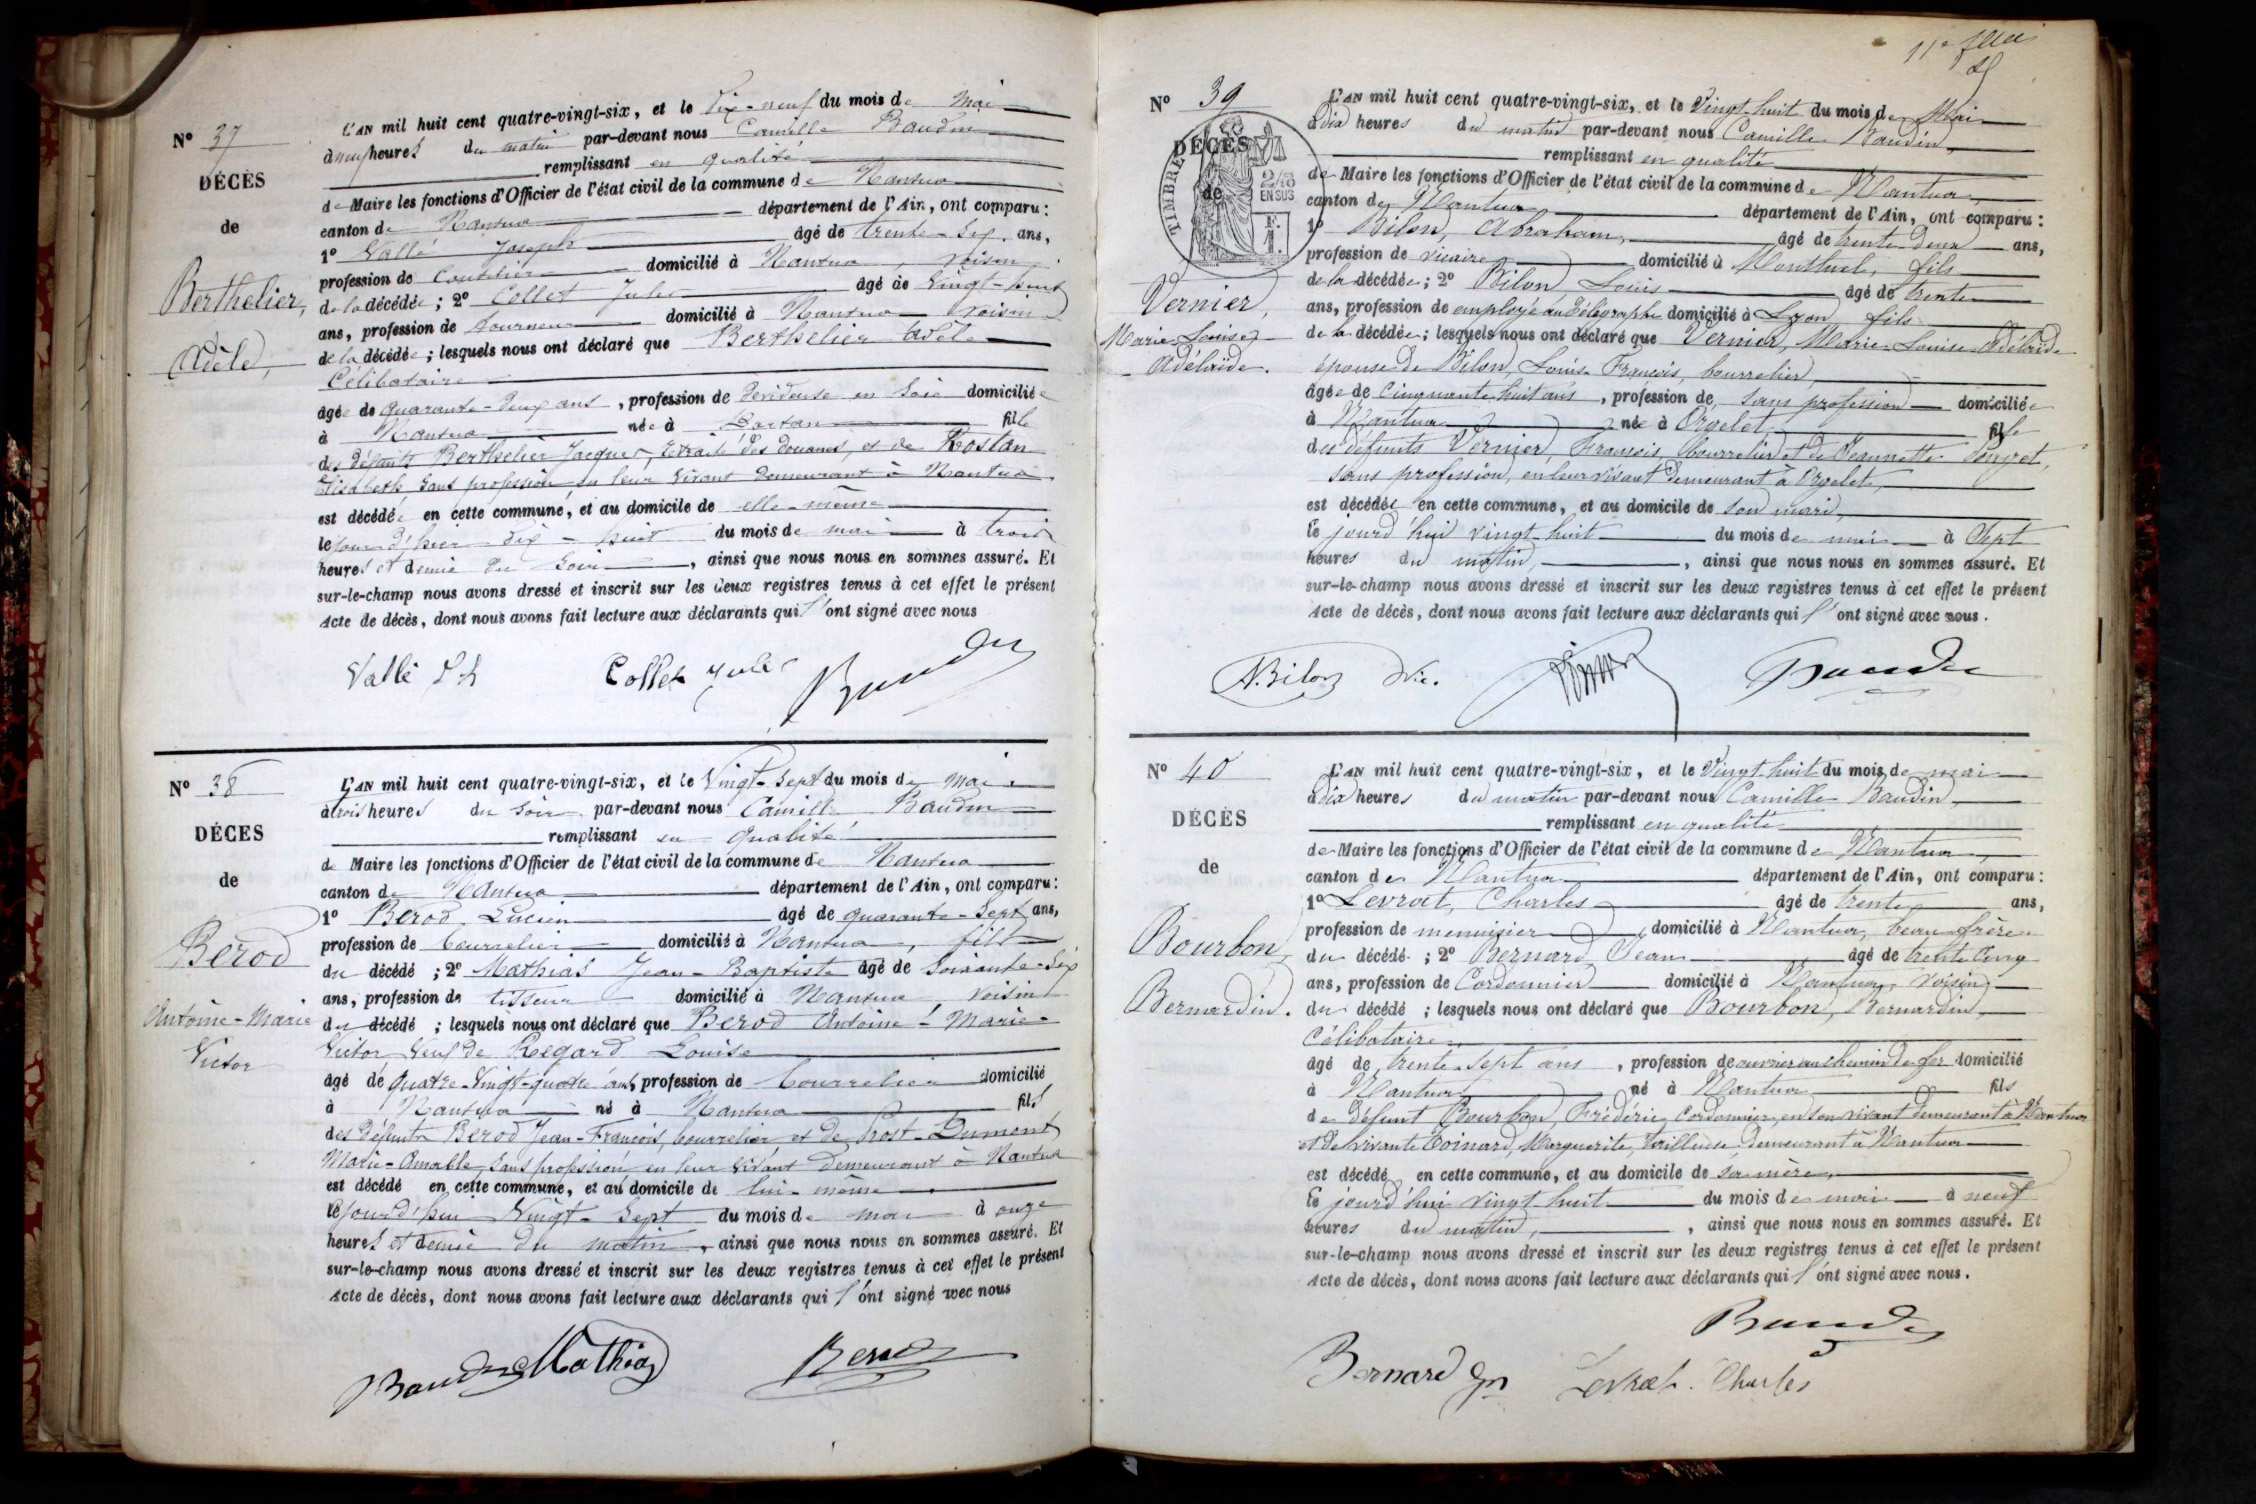 Nº 37
DÉCÈS
de
Berthelier,
Adèle,
L'AN mil huit cent quatre-vingt-six, et le Dix-neuf du mois de Mai
à neuf heures du matin par-devant nous Camille Baudin
remplissant en qualité
de Maire les fonctions d'Officier de l'état civil de la commune de Nantua
canton de Nantua département de l'Ain, ont comparu :
1º Vallé Joseph âgé de trente-six ans,
profession de Coutelier domicilié à Nantua, voisin
de la décédée ; 2º Collet Jules âgé de Vingt-huit
ans, profession de Tourneur domicilié à Nantua voisin
de la décédée ; lesquels nous ont déclaré que Berthelier Adèle
Célibataire
âgée de quarante-deux ans, profession de Dévideuse en Soie domiciliée
à Nantua née à Dortan fille
des défunts Berthelier Jacques, retraité des douanes, et de Roslan
Elisabeth sans profession en leur vivant demeurant à Nantua
est décédée en cette commune, et au domicile de elle-même
le jour d'hier dix-huit du mois de mai à trois
heures et demie du soir, ainsi que nous nous en sommes assuré. Et
sur-le-champ nous avons dressé et inscrit sur les deux registres tenus à cet effet le présent
Acte de décès, dont nous avons fait lecture aux déclarants qui l'ont signé avec nous
Vallé Collet Jules Baudin
Nº 38
DÉCES
de
Bérod
Antoine-Marie
Victor
L'AN mil huit cent quatre-vingt-six, et le Vingt-Sept du mois de Mai
à trois heures du soir par-devant nous Camille Baudin
remplissant en qualité
de Maire les fonctions d'Officier de l'état civil de la commune de Nantua
canton de Nantua département de l'Ain, ont comparu :
1º Bérod Lucien âgé de quarante-Sept ans,
profession de bourrelier domicilié à Nantua, fils
du décédé ; 2º Mathias Jean-Baptiste âgé de Soixante-Six
ans, profession de tisseur domicilié à Nantua voisin
du décédé ; lesquels nous ont déclaré que Bérod Antoine-Marie-
Victor Veuf de Regard Louise
âgé de Quatre-Vingt-quatre ans, profession de bourrelier domicilié
à Nantua né à Nantua fils
des défunts Bérod Jean-François, bourrelier et de Prost-Dumont
Marie-Amable, sans profession en leur vivant demeurant à Nantua
est décédé en cette commune, et au domicile de lui-même
le jourd'hui Vingt-Sept du mois de mai à onze
heures et demie du matin, ainsi que nous nous en sommes assuré. Et
sur-le-champ nous avons dressé et inscrit sur les deux registres tenus à cet effet le présent
Acte de décès, dont nous avons fait lecture aux déclarants qui l'ont signé avec nous
Baudin Mathias Berod
11e
Nº 39
DÉCÈS
de
TIMBRE
2/10
EN SUS
F.
1.
Vernier,
Marie-Louise-
Adélaïde.
L'AN mil huit cent quatre-vingt-six, et le Vingt-huit du mois de Mai
à dix heures du matin par-devant nous Camille Baudin,
remplissant en qualité
de Maire les fonctions d'Officier de l'état civil de la commune de Nantua,
canton de Nantua département de l'Ain, ont comparu :
1º Bilon, Abraham, âgé de trente deux ans,
profession de vicaire domicilié à Montluel, fils
de la décédée ; 2º Bilon Louis âgé de trente
ans, profession de employé au télégraphe domicilié à Lyon fils
de la décédée ; lesquels nous ont déclaré que Vernier, Marie-Louise Adélaïde
épouse de Bilon, Louis François, bourrelier,
âgée de Cinquante huit ans, profession de Sans profession domiciliée
à Nantua née à Orgelet, fille
des défunts Vernier, François, bourrelier et de Jeannette
sans profession, en leur vivant demeurant à Orgelet,
est décédée en cette commune, et au domicile de son mari,
le jourd'hui vingt-huit du mois de mai à Sept
heures du matin, ainsi que nous nous en sommes assuré. Et
sur-le-champ nous avons dressé et inscrit sur les deux registres tenus à cet effet le présent
Acte de décès, dont nous avons fait lecture aux déclarants qui l'ont signé avec nous.
A. Bilon Vic. Baudin
Nº 40
DÉCÈS
de
Bourbon,
Bernardin.
L'AN mil huit cent quatre-vingt-six, et le Vingt-huit du mois de mai
à dix heures du matin par-devant nous Camille Baudin,
remplissant en qualité
de Maire les fonctions d'Officier de l'état civil de la commune de Nantua,
canton de Nantua département de l'Ain, ont comparu :
1º Levrat, Charles âgé de trente ans,
profession de menuisier domicilié à Nantua, beau-frère
du décédé ; 2º Bernard Jean âgé de trente Cinq
ans, profession de Cordonnier domicilié à Nantua, voisin
du décédé ; lesquels nous ont déclaré que Bourbon, Bernardin,
Célibataire
âgé de trente-sept ans, profession de ouvrier au chemin de fer domicilié
à Nantua né à Nantua fils
de défunt Bourbon, Frédéric, Cordonnier, en son vivant demeurant à Nantua
et de vivante Coinard, Marguerite, tailleuse, demeurant à Nantua
est décédé en cette commune, et au domicile de sa mère,
le jourd'hui vingt-huit du mois de mai à neuf
heures du matin, ainsi que nous nous en sommes assuré. Et
sur-le-champ nous avons dressé et inscrit sur les deux registres tenus à cet effet le présent
Acte de décès, dont nous avons fait lecture aux déclarants qui l'ont signé avec nous.
Baudin
Bernard Jn Levrat Charles